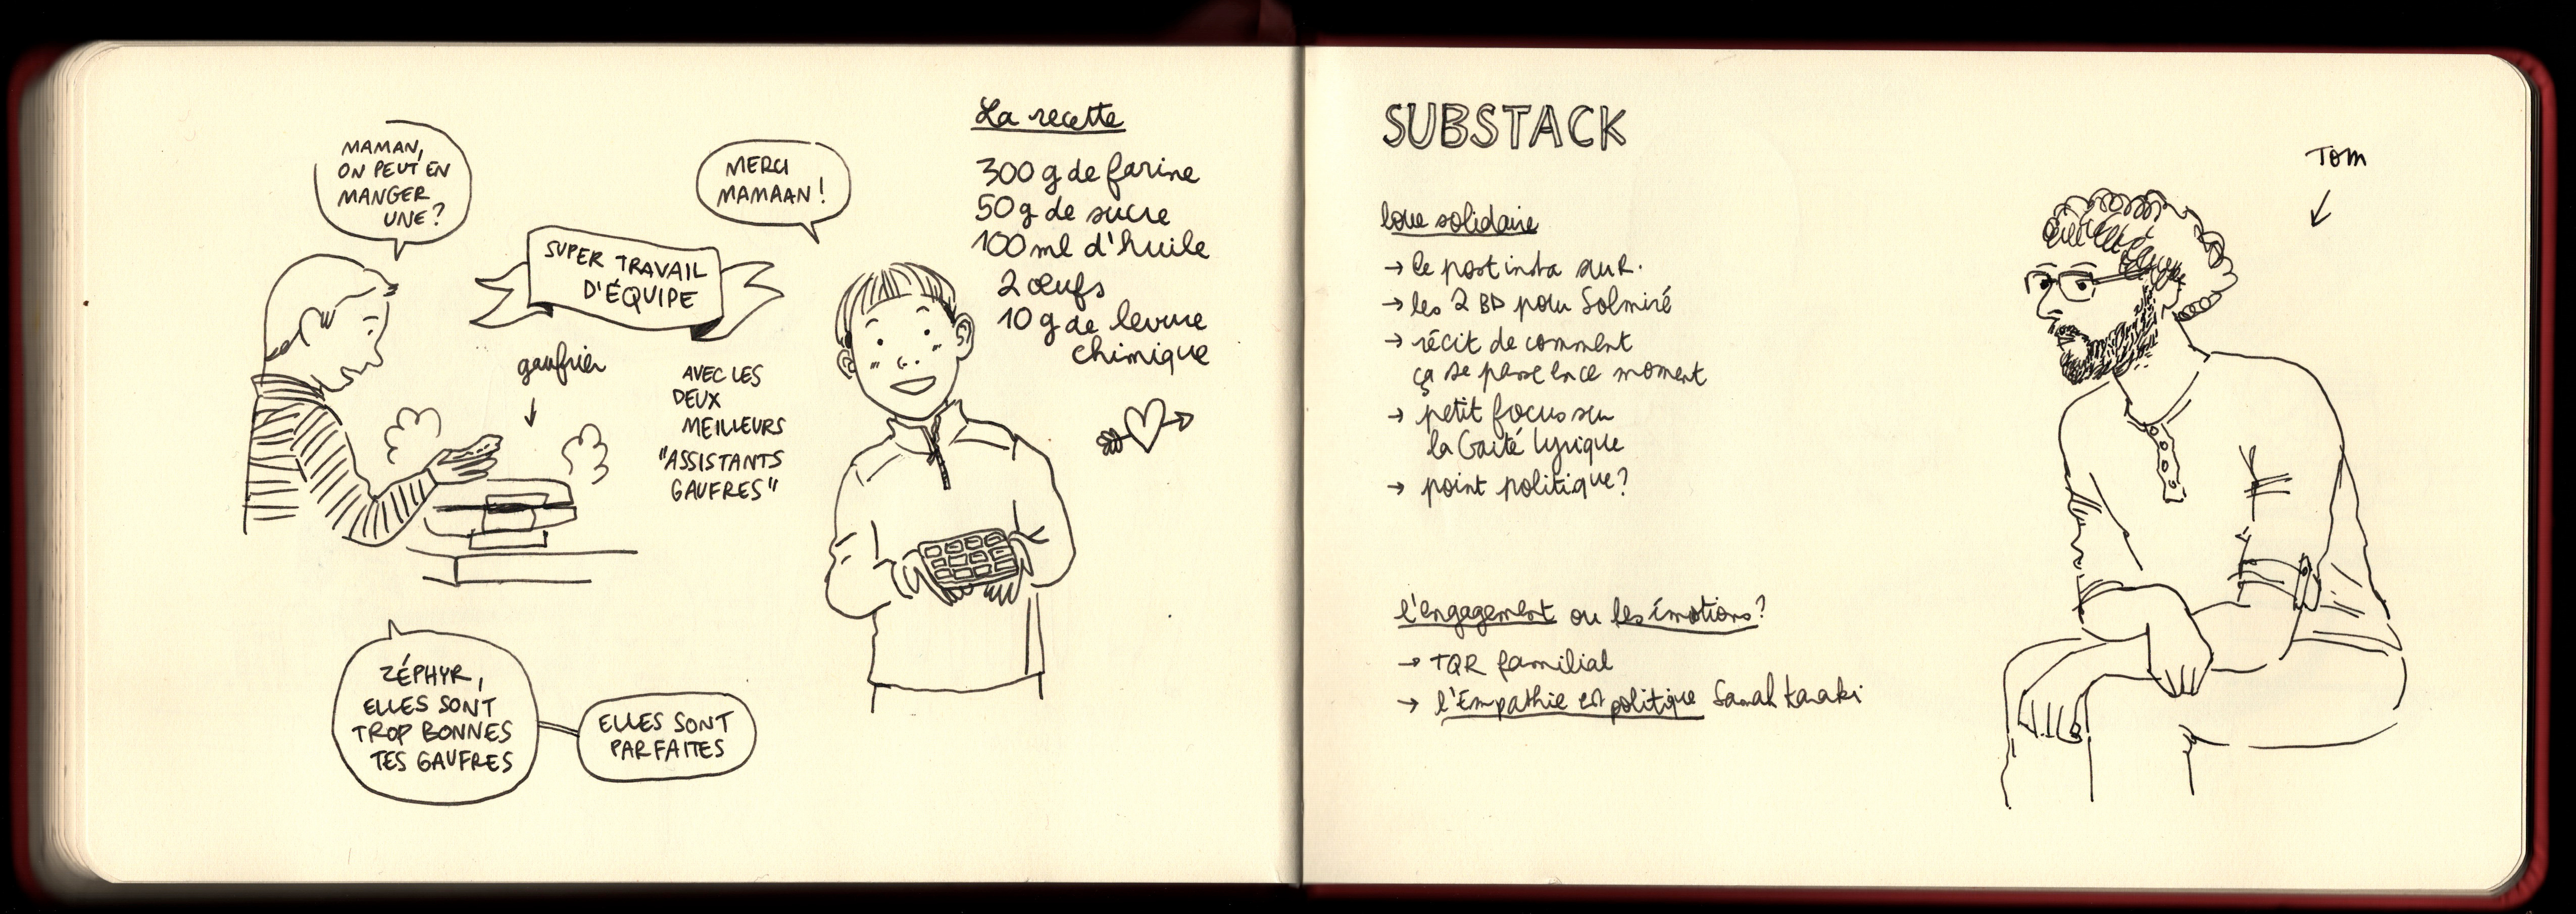 MAMAN,
ON PEUT EN
MANGER
UNE?
MERCI
MAMAAN!
SUPER TRAVAIL
D'ÉQUIPE
gaufrier
AVEC LES
DEUX
MEILLEURS
"ASSISTANTS
GAUFRES"
ZÉPHYR,
ELLES SONT
TROP BONNES
TES GAUFRES
ELLES SONT
PARFAITES
La recette
300 g de farine
50 g de sucre
100 ml d'huile
2 œufs
10 g de levure
chimique
SUBSTACK
solidaire
→ le post insta sur R.
→ les 2 BD pour Solmiré
→ récit de comment
ça se passe en ce moment
→ petit focus sur
la Gaité Lyrique
→ point politique?
l'engagement ou les émotions?
→ TQR familial
→ l'Empathie est politique Samah Karaki
Tom